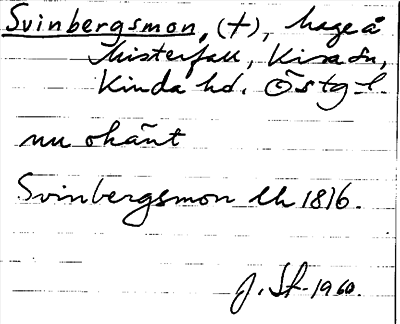 Svinbergsmon, (†), hage å
Misterfall, Kisa sn,
Kinda hd. Östg-l.
nu okänt
Svinbergsmon lh 1816.
J. Sk. 1960.